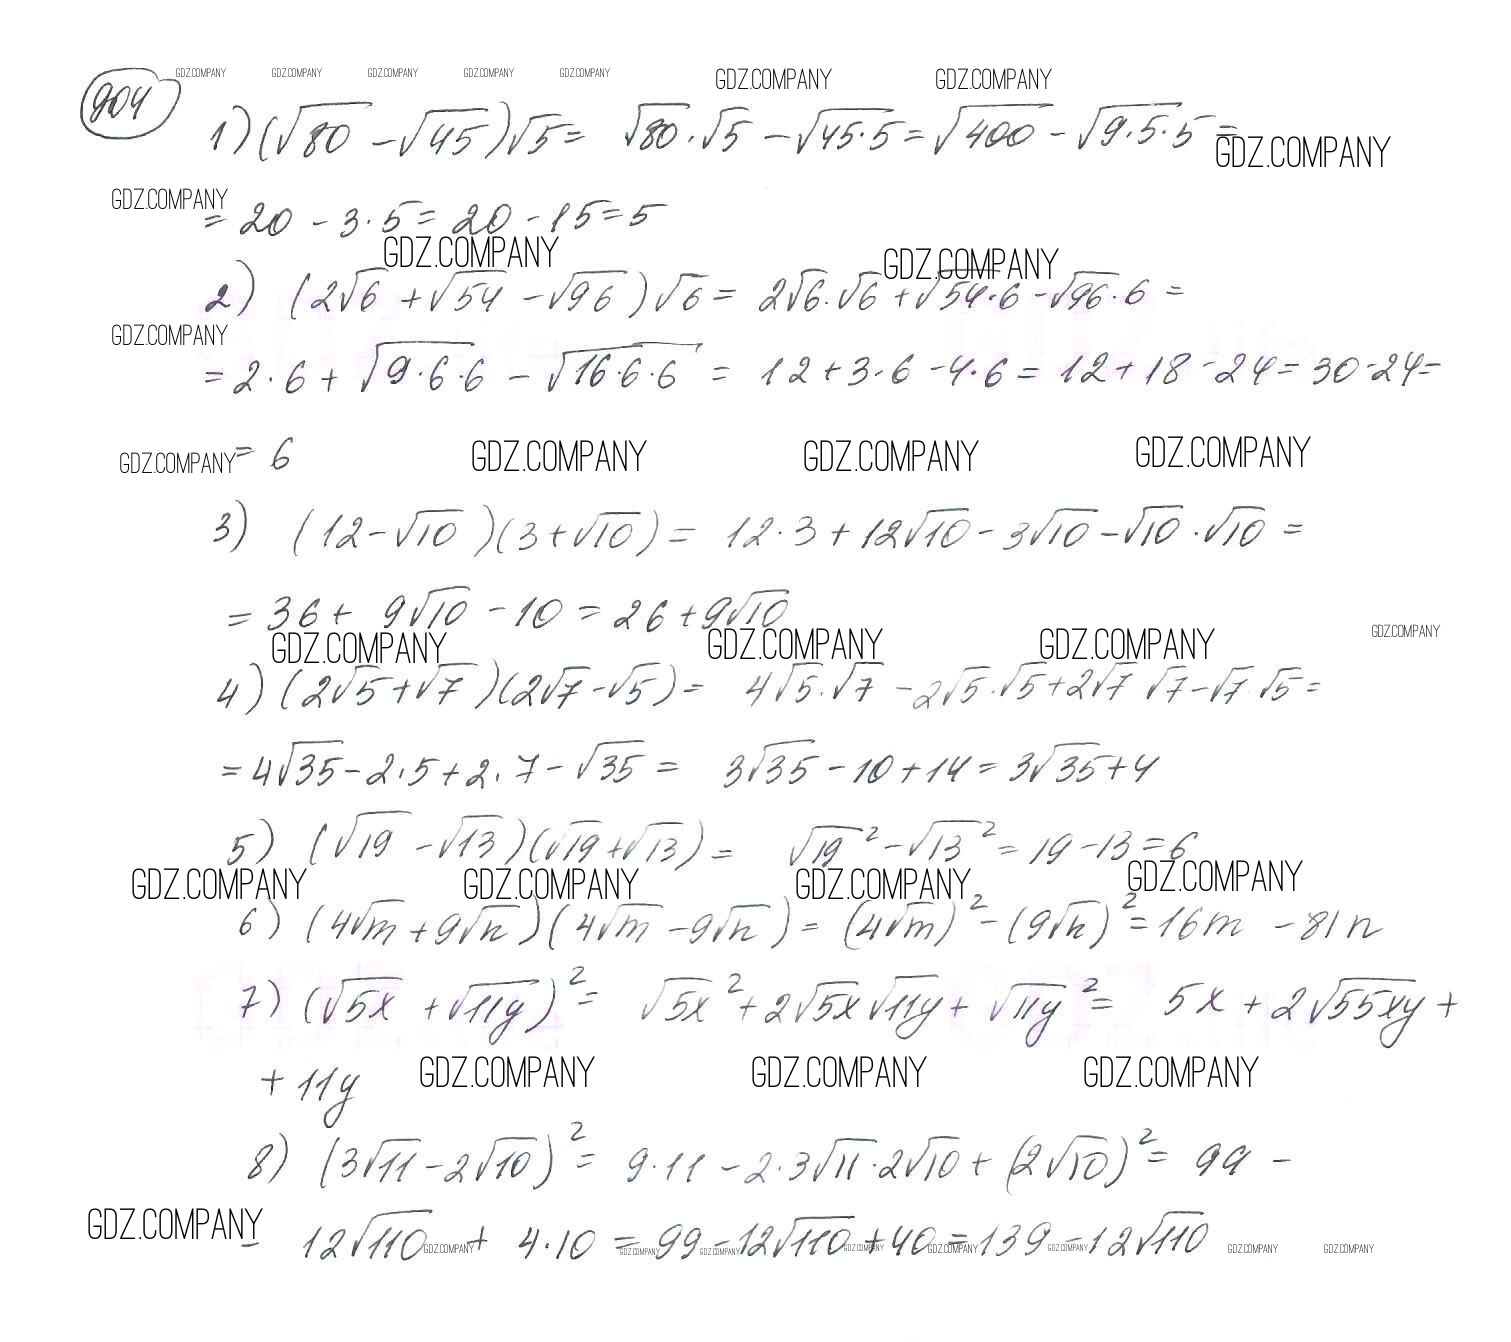 904
GDZ.COMPANY GDZ.COMPANY GDZ.COMPANY GDZ.COMPANY GDZ.COMPANY GDZ.COMPANY GDZ.COMPANY
1) (√80 − √45)√5 = √80·√5 − √45·5 = √400 − √9·5·5 =
GDZ.COMPANY
GDZ.COMPANY
= 20 − 3·5 = 20 − 15 = 5
GDZ.COMPANY GDZ.COMPANY
2) (2√6 + √54 − √96)√6 = 2√6·√6 + √54·6 − √96·6 =
GDZ.COMPANY
= 2·6 + √9·6·6 − √16·6·6 = 12 + 3·6 − 4·6 = 12 + 18 − 24 = 30 − 24 =
GDZ.COMPANY = 6 GDZ.COMPANY GDZ.COMPANY GDZ.COMPANY
3) (12 − √10)(3 + √10) = 12·3 + 12√10 − 3√10 − √10·√10 =
= 36 + 9√10 − 10 = 26 + 9√10
GDZ.COMPANY GDZ.COMPANY GDZ.COMPANY GDZ.COMPANY
4) (2√5 + √7)(2√7 − √5) = 4√5·√7 − 2√5·√5 + 2√7 √7 − √7·√5 =
= 4√35 − 2·5 + 2·7 − √35 = 3√35 − 10 + 14 = 3√35 + 4
5) (√19 − √13)(√19 + √13) = √19² − √13² = 19 − 13 = 6
GDZ.COMPANY GDZ.COMPANY GDZ.COMPANY GDZ.COMPANY
6) (4√m + 9√n)(4√m − 9√n) = (4√m)² − (9√n)² = 16m − 81n
7) (√5x + √11y)² = √5x² + 2√5x√11y + √11y² = 5x + 2√55xy +
+ 11y
GDZ.COMPANY GDZ.COMPANY GDZ.COMPANY
8) (3√11 − 2√10)² = 9·11 − 2·3√11·2√10 + (2√10)² = 99 −
GDZ.COMPANY
− 12√110 + 4·10 = 99 − 12√110 + 40 = 139 − 12√110
GDZ.COMPANY GDZ.COMPANY GDZ.COMPANY GDZ.COMPANY GDZ.COMPANY GDZ.COMPANY GDZ.COMPANY GDZ.COMPANY